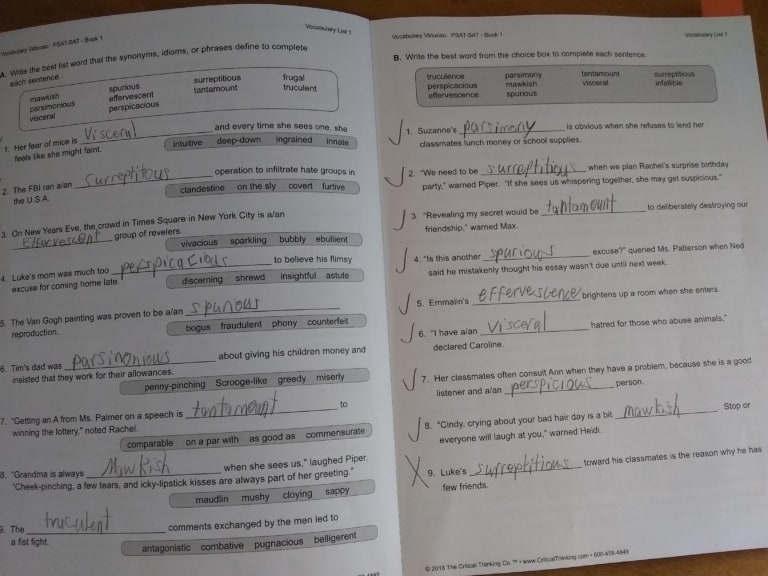 Vocabulary Virtuoso: PSAT-SAT - Book 1
Vocabulary List 1
A. Write the best list word that the synonyms, idioms, or phrases define to complete
each sentence.
mawkish spurious surreptitious frugal
parsimonious effervescent tantamount truculent
visceral perspicacious
1. Her fear of mice is visceral and every time she sees one, she
feels like she might faint.
intuitive deep-down ingrained innate
2. The FBI ran a/an surreptitous operation to infiltrate hate groups in
the U.S.A.
clandestine on the sly covert furtive
3. On New Years Eve, the crowd in Times Square in New York City is a/an
Effervescent group of revelers.
vivacious sparkling bubbly ebullient
4. Luke's mom was much too perspicacious to believe his flimsy
excuse for coming home late.
discerning shrewd insightful astute
5. The Van Gogh painting was proven to be a/an spurious
reproduction.
bogus fraudulent phony counterfeit
6. Tim's dad was parsinonious about giving his children money and
insisted that they work for their allowances.
penny-pinching Scrooge-like greedy miserly
7. "Getting an A from Ms. Palmer on a speech is tantamount to
winning the lottery," noted Rachel.
comparable on a par with as good as commensurate
8. "Grandma is always Mawkish when she sees us," laughed Piper.
"Cheek-pinching, a few tears, and icky-lipstick kisses are always part of her greeting."
maudlin mushy cloying sappy
9. The truculent comments exchanged by the men led to
a fist fight.
antagonistic combative pugnacious belligerent
Vocabulary Virtuoso: PSAT-SAT - Book 1
Vocabulary List 1
B. Write the best word from the choice box to complete each sentence.
truculence parsimony tantamount surreptitious
perspicacious mawkish visceral infallible
effervescence spurious
1. Suzanne's parsimony is obvious when she refuses to lend her
classmates lunch money or school supplies.
2. "We need to be surreptitious when we plan Rachel's surprise birthday
party," warned Piper. "If she sees us whispering together, she may get suspicious."
3. "Revealing my secret would be tantamount to deliberately destroying our
friendship," warned Max.
4. "Is this another spurious excuse?" queried Ms. Patterson when Ned
said he mistakenly thought his essay wasn't due until next week.
5. Emmalin's effervescence brightens up a room when she enters.
6. "I have a/an visceral hatred for those who abuse animals,"
declared Caroline.
7. Her classmates often consult Ann when they have a problem, because she is a good
listener and a/an perspicious person.
8. "Cindy, crying about your bad hair day is a bit mawkish. Stop or
everyone will laugh at you," warned Heidi.
9. Luke's surreptitious toward his classmates is the reason why he has
few friends.
© 2018 The Critical Thinking Co.™ • www.CriticalThinking.com • 800-458-4849
-4849